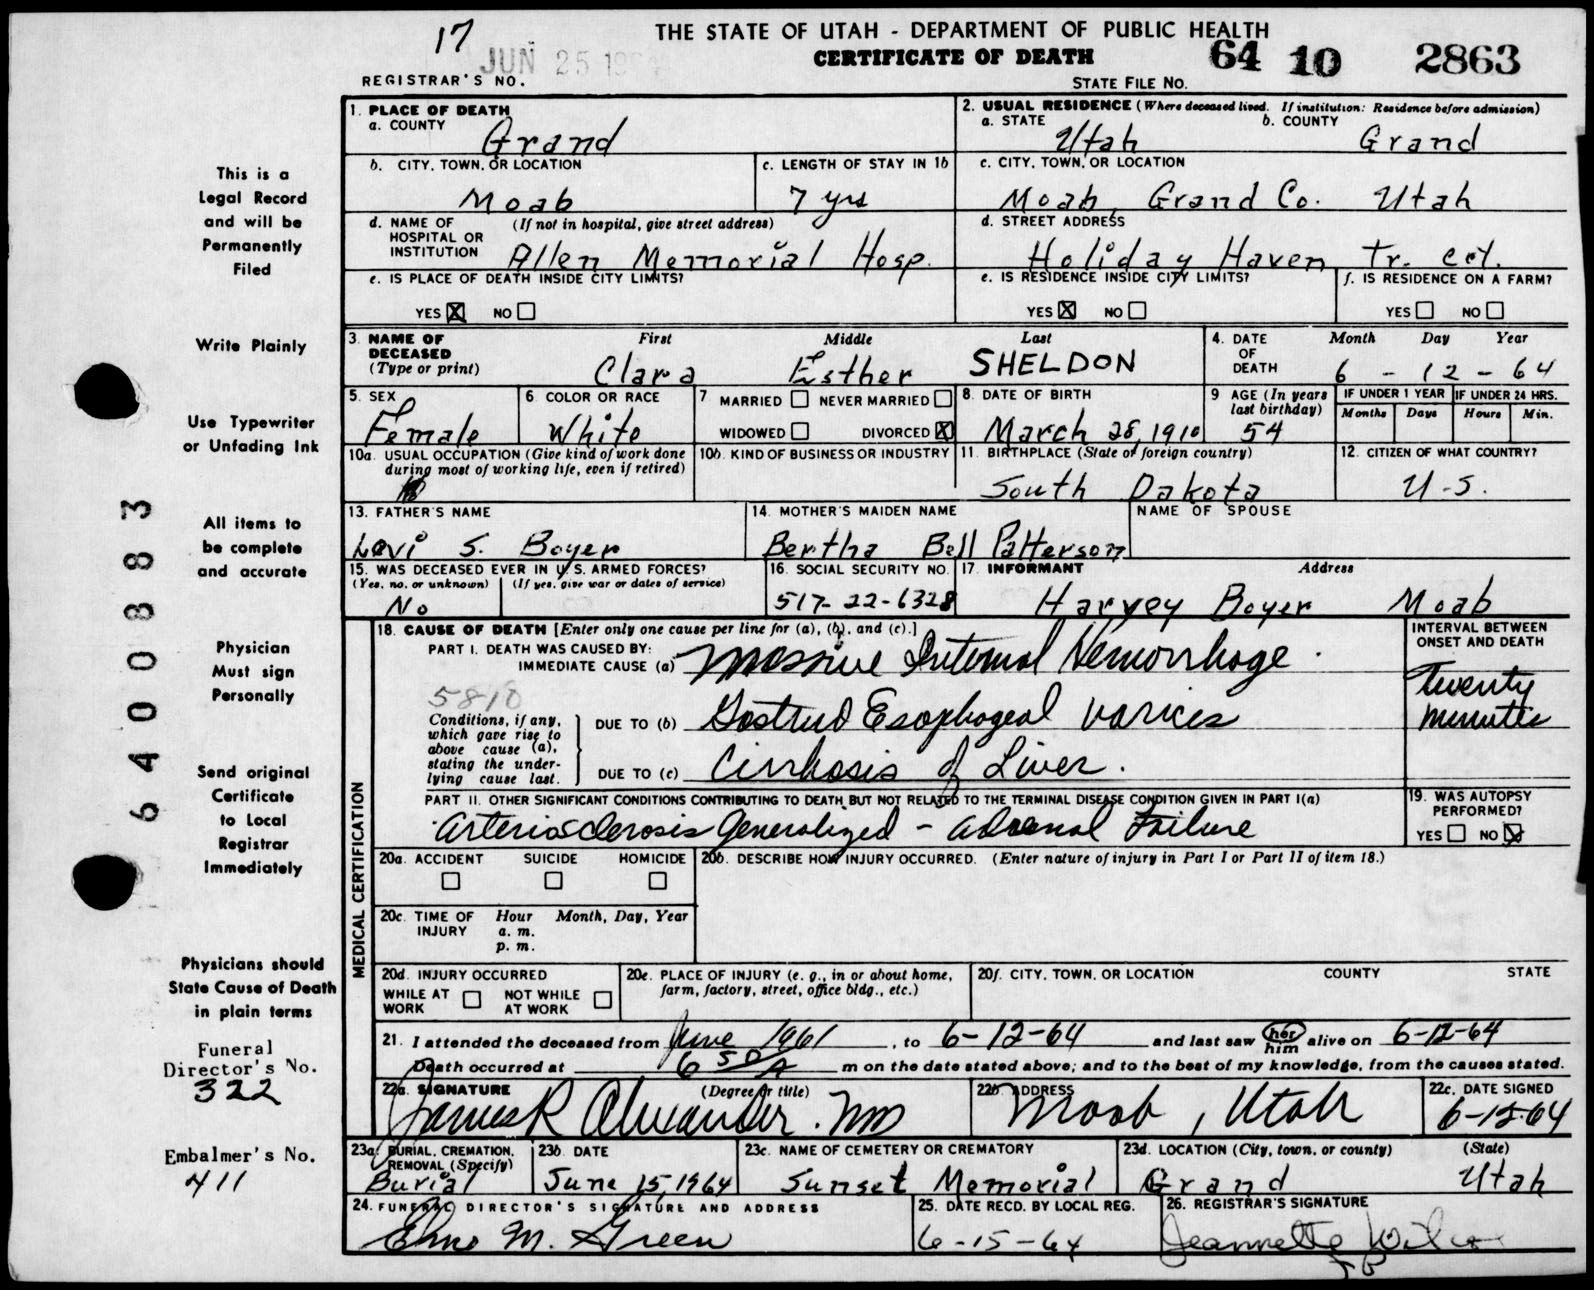 17
JUN 25 19
THE STATE OF UTAH - DEPARTMENT OF PUBLIC HEALTH
CERTIFICATE OF DEATH
64 10 2863
REGISTRAR'S NO.
STATE FILE NO.
1. PLACE OF DEATH
a. COUNTY
Grand
2. USUAL RESIDENCE (Where deceased lived. If institution: Residence before admission)
a. STATE
Utah
b. COUNTY
Grand
b. CITY, TOWN, OR LOCATION
Moab
c. LENGTH OF STAY IN 1b
7 yrs
c. CITY, TOWN, OR LOCATION
Moab, Grand Co. Utah
d. NAME OF HOSPITAL OR INSTITUTION
(If not in hospital, give street address)
Allen Memorial Hosp.
d. STREET ADDRESS
Holiday Haven Tr. crt.
e. IS PLACE OF DEATH INSIDE CITY LIMITS?
YES X NO
e. IS RESIDENCE INSIDE CITY LIMITS?
YES X NO
f. IS RESIDENCE ON A FARM?
YES NO
3. NAME OF DECEASED (Type or print)
First Middle Last
Clara Esther SHELDON
4. DATE OF DEATH
Month Day Year
6 - 12 - 64
5. SEX
Female
6. COLOR OR RACE
White
7 MARRIED NEVER MARRIED
WIDOWED DIVORCED X
8. DATE OF BIRTH
March 28, 1910
9 AGE (In years last birthday)
54
IF UNDER 1 YEAR
Months Days
IF UNDER 24 HRS.
Hours Min.
10a. USUAL OCCUPATION (Give kind of work done during most of working life, even if retired)
10b. KIND OF BUSINESS OR INDUSTRY
11. BIRTHPLACE (State or foreign country)
South Dakota
12. CITIZEN OF WHAT COUNTRY?
U-S.
13. FATHER'S NAME
Levi S. Boyer
14. MOTHER'S MAIDEN NAME
Bertha Bell Patterson
NAME OF SPOUSE
15. WAS DECEASED EVER IN U.S. ARMED FORCES?
(Yes, no, or unknown) (If yes, give war or dates of service)
No
16. SOCIAL SECURITY NO.
517-22-6328
17. INFORMANT Address
Harvey Boyer Moab
MEDICAL CERTIFICATION
18. CAUSE OF DEATH [Enter only one cause per line for (a), (b), and (c).]
PART I. DEATH WAS CAUSED BY:
IMMEDIATE CAUSE (a) Massive Internal Hemorrhage.
5810
Conditions, if any, which gave rise to above cause (a), stating the underlying cause last.
DUE TO (b) Esophageal Varices
DUE TO (c) Cirrhosis of Liver.
INTERVAL BETWEEN ONSET AND DEATH
Twenty minutes
PART II. OTHER SIGNIFICANT CONDITIONS CONTRIBUTING TO DEATH BUT NOT RELATED TO THE TERMINAL DISEASE CONDITION GIVEN IN PART I(a)
Arteriosclerosis Generalized - Adrenal Failure
19. WAS AUTOPSY PERFORMED?
YES NO X
20a. ACCIDENT SUICIDE HOMICIDE
20b. DESCRIBE HOW INJURY OCCURRED. (Enter nature of injury in Part I or Part II of item 18.)
20c. TIME OF INJURY
Hour Month, Day, Year
a. m.
p. m.
20d. INJURY OCCURRED
WHILE AT WORK NOT WHILE AT WORK
20e. PLACE OF INJURY (e. g., in or about home, farm, factory, street, office bldg., etc.)
20f. CITY, TOWN, OR LOCATION COUNTY STATE
21. I attended the deceased from June 1961, to 6-12-64 and last saw her him alive on 6-12-64
Death occurred at 6 50 A m on the date stated above; and to the best of my knowledge, from the causes stated.
22a. SIGNATURE (Degree or title)
James R Alexander. MD
22b. ADDRESS
Moab, Utah
22c. DATE SIGNED
6-15-64
23a. BURIAL, CREMATION, REMOVAL (Specify)
Burial
23b. DATE
June 15, 1964
23c. NAME OF CEMETERY OR CREMATORY
Sunset Memorial
23d. LOCATION (City, town, or county) (State)
Grand Utah
24. FUNERAL DIRECTOR'S SIGNATURE AND ADDRESS
M. Green
25. DATE RECD. BY LOCAL REG.
6-15-64
26. REGISTRAR'S SIGNATURE
Jeannette
This is a
Legal Record
and will be
Permanently
Filed
Write Plainly
Use Typewriter
or Unfading Ink
All items to
be complete
and accurate
Physician
Must sign
Personally
Send original
Certificate
to Local
Registrar
Immediately
Physicians should
State Cause of Death
in plain terms
Funeral
Director's No.
322
Embalmer's No.
411
6400883